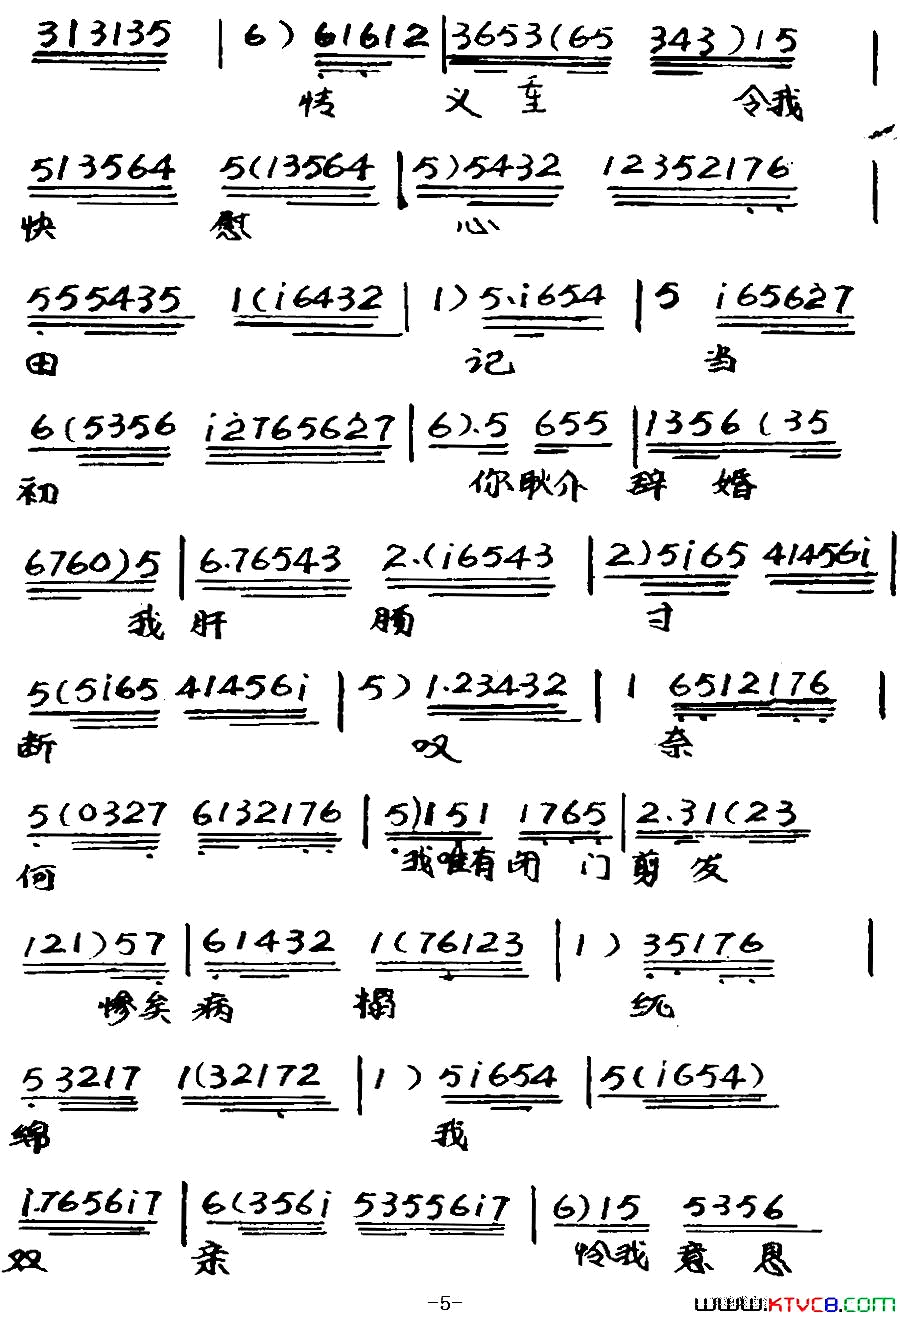 313135 | 6) 61612 | 3653(65 343)15 |
情 义 重 令我
513564 5(13564 | 5)5432 12352176 |
快 慰 心
555435 1(i6432 | 1) 5.i654 | 5 i65627
田 记 当
6(5356 i2765627 | 6).5 655 | 1356(35
初 你耿介 辞 婚
6760)5 | 6.76543 2.(i6543 | 2)5i65 41456i |
我 肝 肠 寸
5(5i65 41456i | 5) 1.23432 | 1 6512176 |
断 叹 奈
5(0327 6132176 | 5)151 1765 | 2.31(23
何 我唯有闭 门 剪 发
121)57 | 61432 1(76123 | 1) 35176 |
惨矣 病 榻
53217 1(32172 | 1) 5i654 | 5(i654)
绵 我
i.7656i7 | 6(356i 53556i7 | 6)15 5356
双 亲 怜我 意 恩
-5-
www.KTVC8.COM